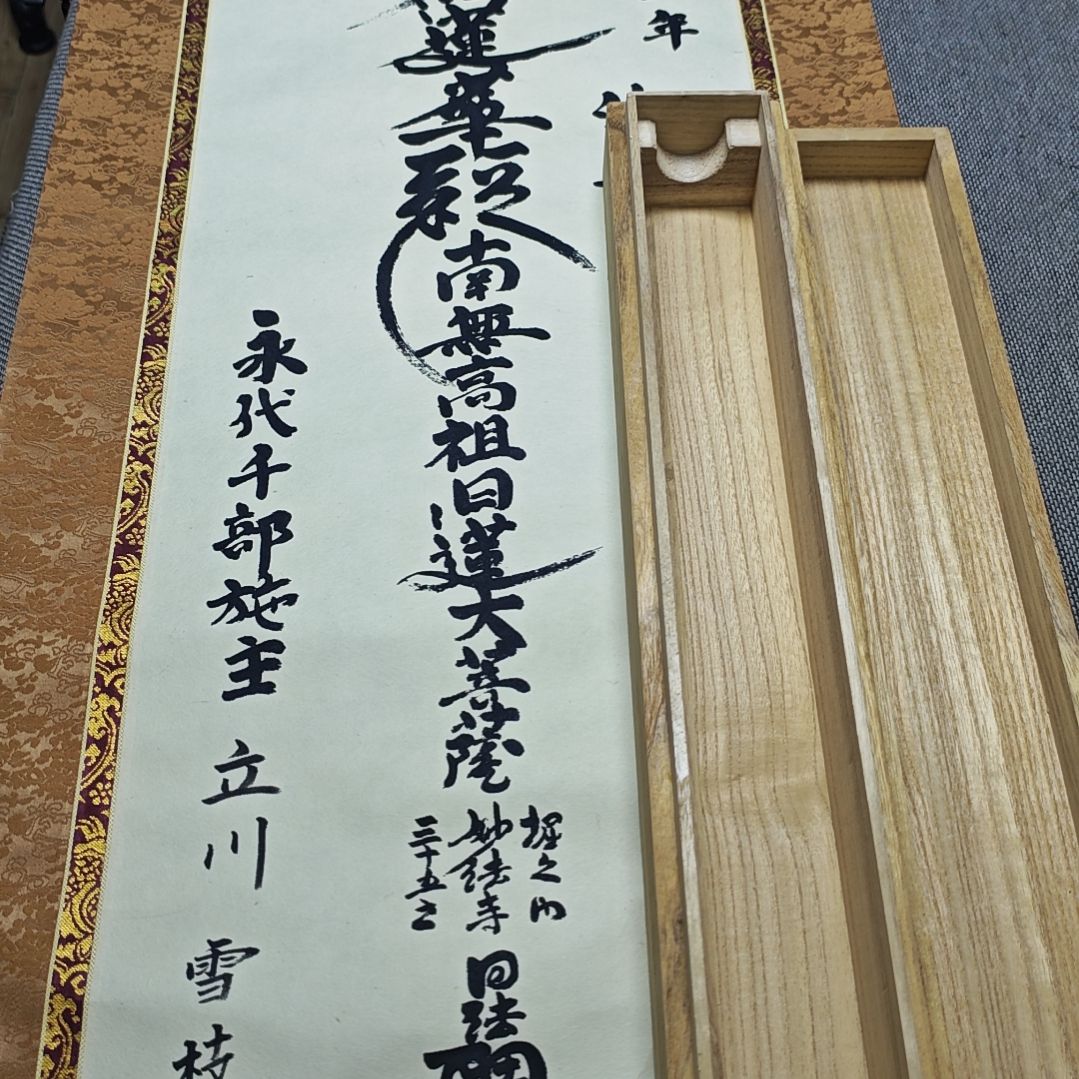 年
蓮華経
南無高祖日蓮大菩薩
堀之内
妙法寺
三十五世
日法
永代千部施主 立川 雪枝